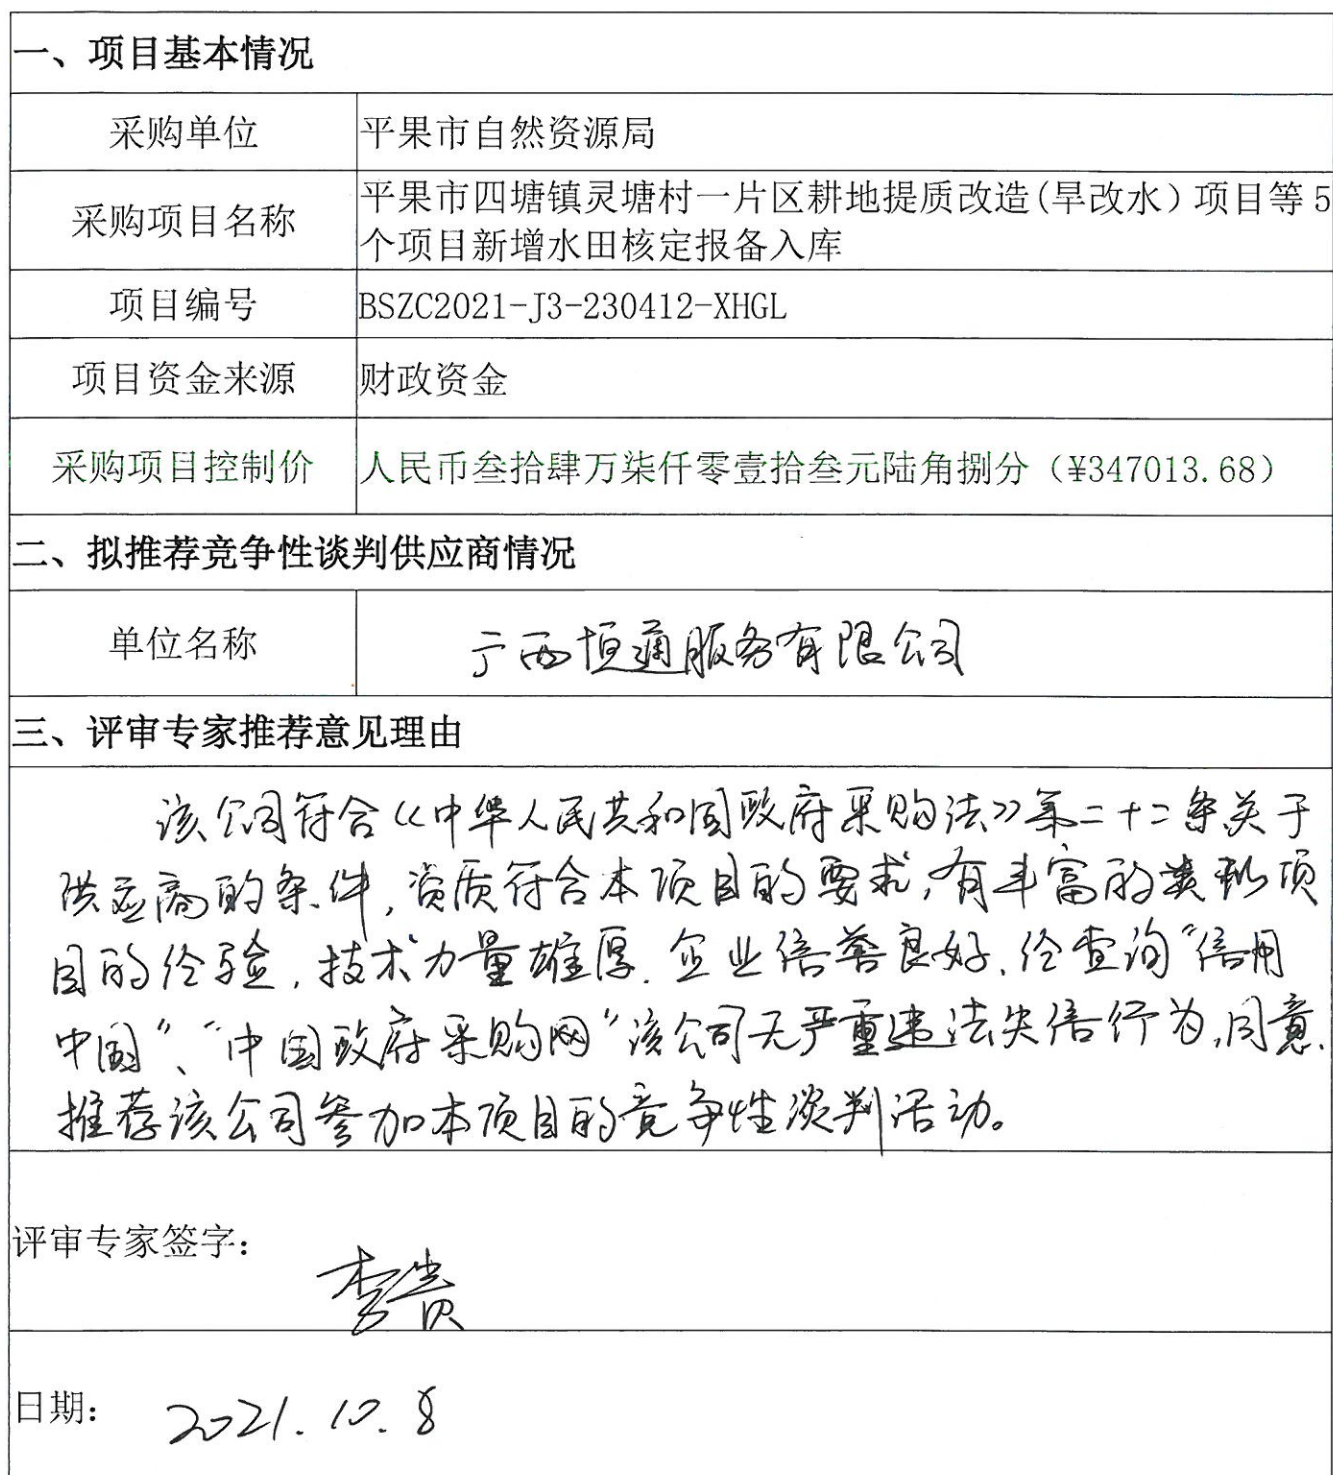 一、项目基本情况
采购单位 平果市自然资源局
采购项目名称 平果市四塘镇灵塘村一片区耕地提质改造(旱改水)项目等5
个项目新增水田核定报备入库
项目编号 BSZC2021-J3-230412-XHGL
项目资金来源 财政资金
采购项目控制价 人民币叁拾肆万柒仟零壹拾叁元陆角捌分（¥347013.68）
二、拟推荐竞争性谈判供应商情况
单位名称 广西恒通服务有限公司
三、评审专家推荐意见理由
该公司符合《中华人民共和国政府采购法》第二十二条关于
供应商的条件,资质符合本项目的要求,有丰富的类似项
目的经验,技术力量雄厚.企业信誉良好,经查询“信用
中国”、“中国政府采购网”该公司无严重违法失信行为,同意
推荐该公司参加本项目的竞争性谈判活动。
评审专家签字：
李贵
日期： 2021.10.8